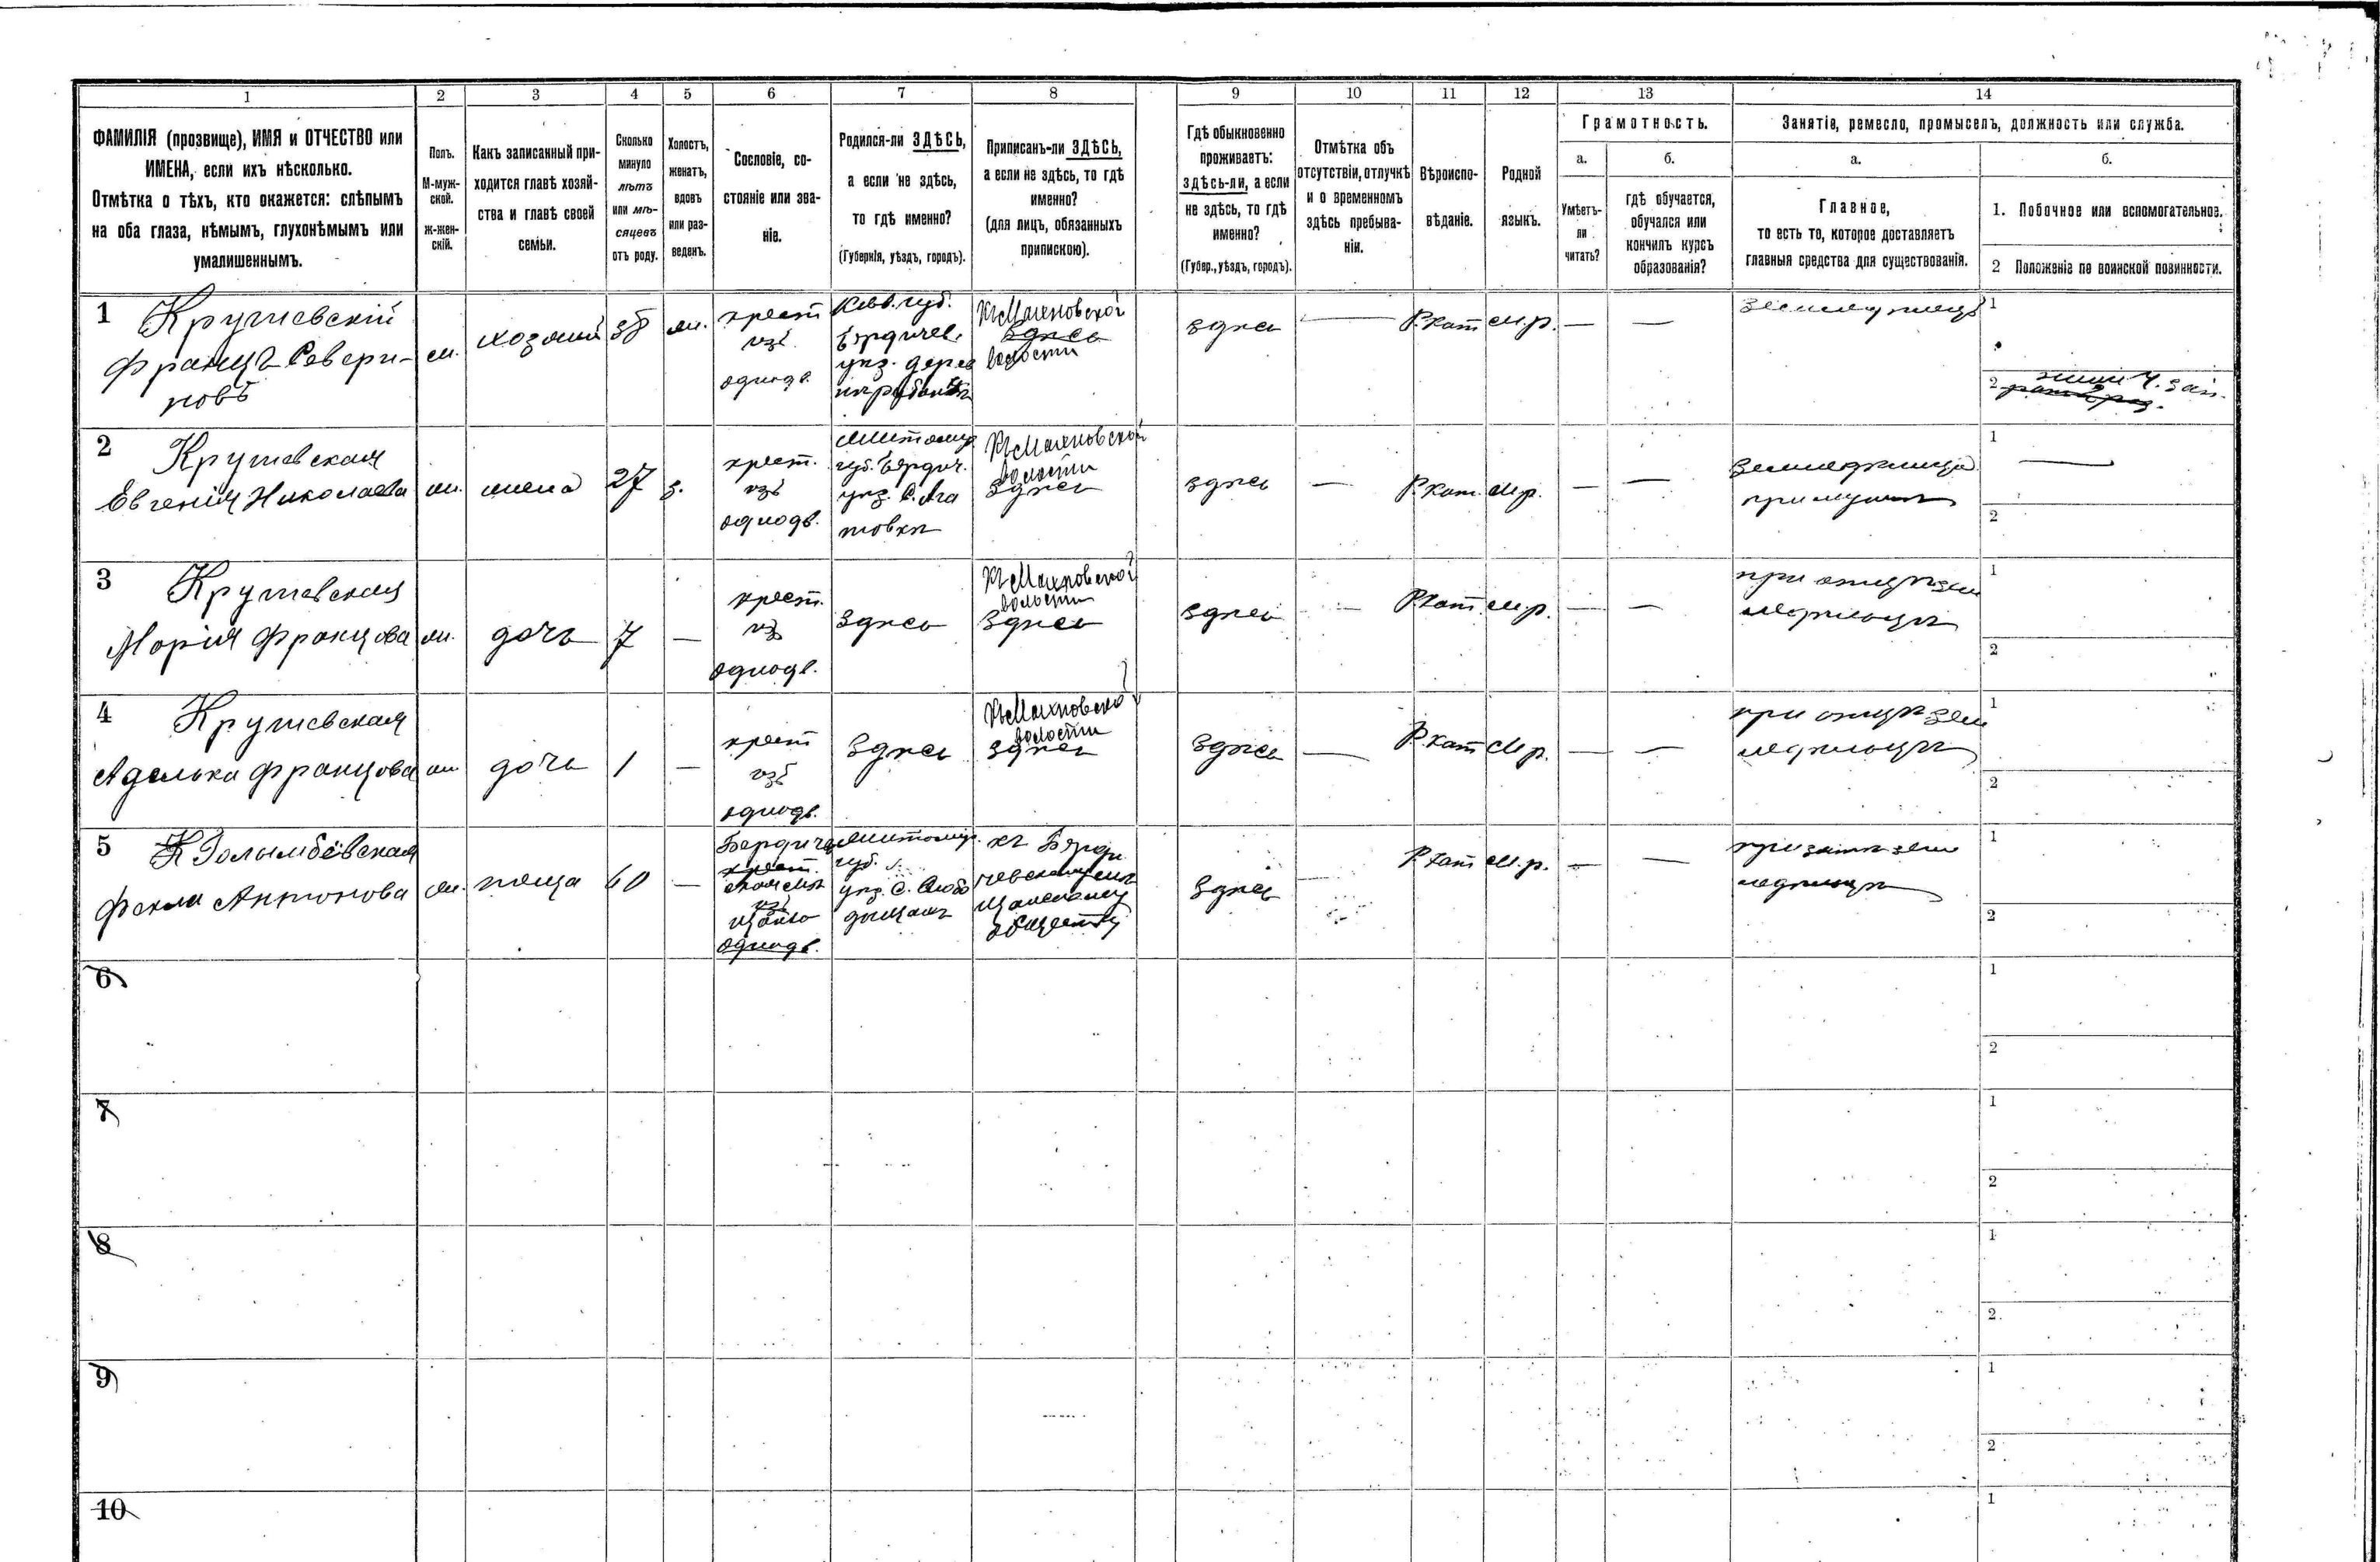 1 2 3 4 5 6 7 8 9 10 11 12 13 14
ФАМИЛІЯ (прозвище), ИМЯ и ОТЧЕСТВО или
ИМЕНА, если ихъ нѣсколько.
Отмѣтка о тѣхъ, кто окажется: слѣпымъ
на оба глаза, нѣмымъ, глухонѣмымъ или
умалишеннымъ.
Полъ.
М-муж-
ской.
ж-жен-
скій.
Какъ записанный при-
ходится главѣ хозяй-
ства и главѣ своей
семьи.
Сколько
минуло
лѣтъ
или мѣ-
сяцевъ
отъ роду.
Холостъ,
женатъ,
вдовъ
или раз-
веденъ.
Сословіе, со-
стояніе или зва-
ніе.
Родился-ли ЗДѢСЬ,
а если не здѣсь,
то гдѣ именно?
(Губернія, уѣздъ, городъ).
Приписанъ-ли ЗДѢСЬ,
а если не здѣсь, то гдѣ
именно?
(для лицъ, обязанныхъ
припискою).
Гдѣ обыкновенно
проживаетъ:
здѣсь-ли, а если
не здѣсь, то гдѣ
именно?
(Губер., уѣздъ, городъ).
Отмѣтка объ
отсутствіи, отлучкѣ
и о временномъ
здѣсь пребыва-
ніи.
Вѣроиспо-
вѣданіе.
Родной
языкъ.
Грамотность.
а.
Умѣетъ-
ли
читать?
б.
гдѣ обучается,
обучался или
кончилъ курсъ
образованія?
Занятіе, ремесло, промыселъ, должность или служба.
а.
Главное,
то есть то, которое доставляетъ
главныя средства для существованія.
б.
1. Побочное или вспомогательное.
2 Положеніе по воинской повинности.
1 Крушевскій
Францъ Севери-
новъ
м.
хозяинъ
38
ж.
крест
изъ
однодв.
Кіев. губ.
Бердичев.
уѣз. дерев
Къ Махновской
здѣсь
волости
здѣсь
—
Р.кат
М.р.
—
—
земледѣлецъ
1
2
2 Крушевская
Евгенія Николаева
ж.
жена
27
з.
крест.
изъ
однодв.
Житомир.
губ. Бердич.
уѣз. С.
Къ Махновской
волости
здѣсь
здѣсь
—
Р.кат.
М.р.
—
—
при мужѣ
1 —
2
3 Крушевская
Марія Францова
ж.
дочь
7
—
крест.
изъ
однодв.
здѣсь
Къ Махновской
волости
здѣсь
здѣсь
—
Р.кат.
М.р.
—
—
при отцѣ зем
ледѣльцѣ
1
2
4 Крушевская
Аделька Францова
ж.
дочь
1
—
крест
изъ
однодв.
здѣсь
Къ Махновской
волости
здѣсь
здѣсь
—
Р.кат
М.р.
—
—
при отцѣ зем
ледѣльцѣ
1
2
5
Фекла Антонова
ж.
теща
60
—
крест.
изъ
однодв.
Житомир.
губ.
уѣз. С.
къ Берди
чевскому
мѣщанскому
обществу
здѣсь
—
Р.кат
М.р.
—
—
при зятѣ зем
ледѣльцѣ
1
2
6
1
2
7
1
2
8
1
2
9
1
2
10
1